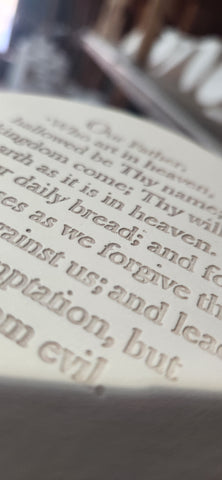 Our Father,
who art in heaven,
hallowed be Thy name
kingdom come; Thy will
earth as it is in heaven.
r daily bread; and fo
ses as we forgive th
against us; and lead
mptation, but
om evil.